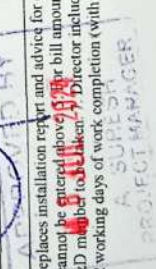 eplaces installation report and advice for
annot be entered above. For bill amoun
&D member to be taken. Director includ
working days of work completion (with
A SURESH
PROJECT MANAGER